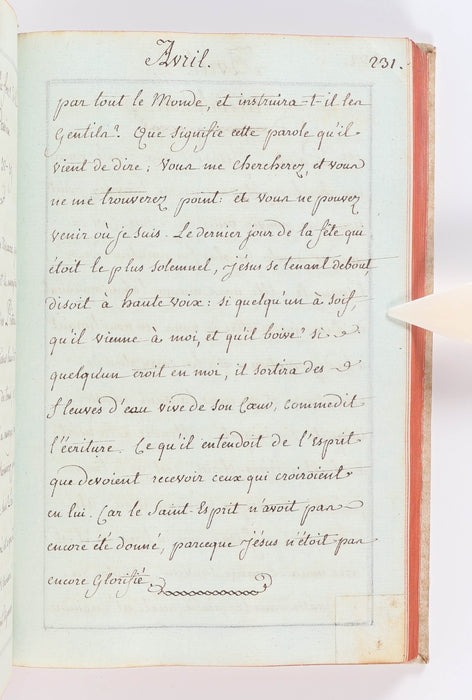 Avril.
231.
par tout le Monde, et instruira-t-il les
Gentils? Que signifie cette parole qu'il
vient de dire; Vous me chercherez, et vous
ne me trouverez point: et vous ne pouvez
venir où je suis. Le dernier jour de la fête qui
étoit le plus solemnel, Jésus se tenant debout,
disoit à haute voix: si quelqu'un à soif,
qu'il vienne à moi, et qu'il boive? si
quelqu'un croit en moi, il sortira des
fleuves d'eau vive de son Cœur, comme dit
l'écriture. Ce qu'il entendoit de l'Esprit
que devoient recevoir ceux qui croiroient
en lui. Car le Saint-Esprit n'avoit pas
encore été donné, parceque Jésus n'étoit pas
encore Glorifié